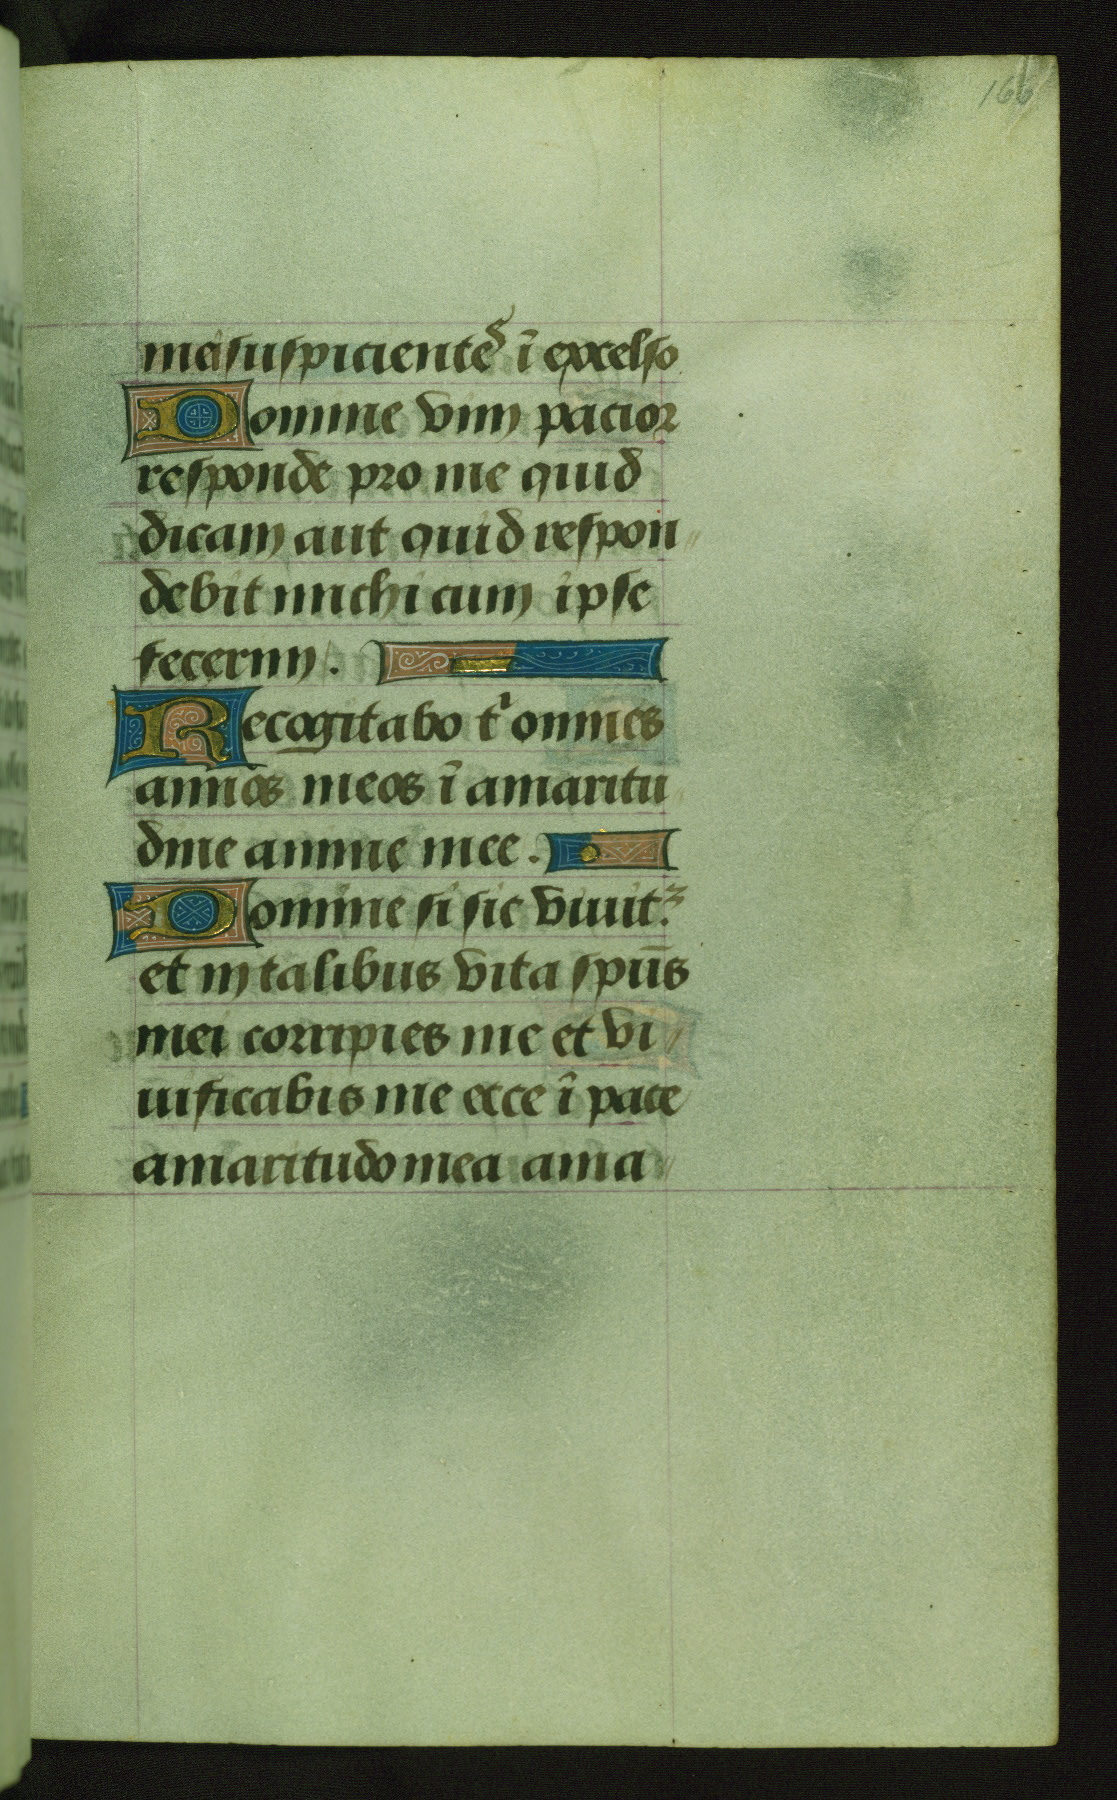 166
mei suspicientes ī excelso
Domine vim pacior
responde pro me quid
dicam aut quid respon
debit michi cum ipse
fecerim.
Recogitabo tⁱ omnes
annos meos ī amaritu
dine anime mee.
Domine si sic viuitꝛ
et in talibus vita spūs
mei corripies me et vi
uificabis me ecce ī pace
amaritudo mea ama